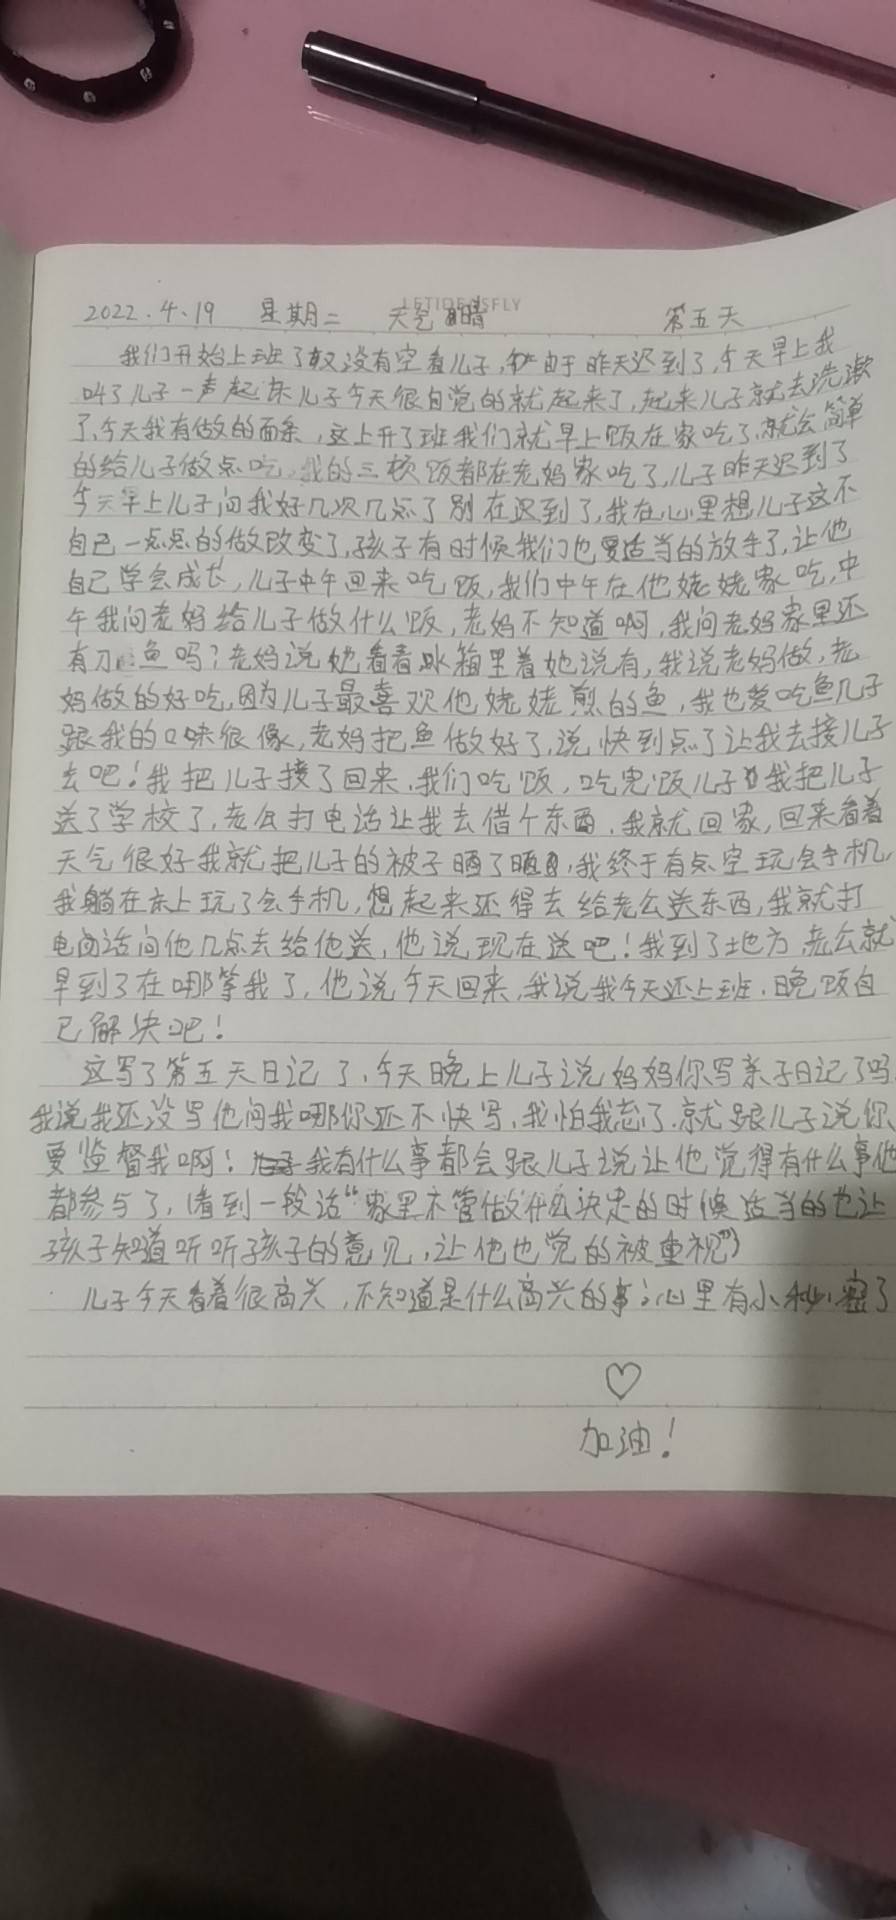 LETIDEASFLY
2022.4.19 星期二 天气 晴 第五天
我们开始上班了又没有空看儿子,由于昨天迟到了,今天早上我
叫了儿子一声起床儿子今天很自觉的就起来了,起来儿子就去洗漱
了,今天我有做的面条,这上开了班我们就早上饭在家吃了,就会简单
的给儿子做点吃,我的三顿饭都在老妈家吃了,儿子昨天迟到了
今天早上儿子问我好几次几点了别在迟到了,我在心里想儿子这不
自己一点点的做改变了,孩子有时候我们也要适当的放手了,让他
自己学会成长,儿子中午回来吃饭,我们中午在他姥姥家吃,中
午我问老妈给儿子做什么饭,老妈不知道啊,我问老妈家里还
有刀鱼吗?老妈说她看看冰箱里着她说有,我说老妈做,老
妈做的好吃,因为儿子最喜欢他姥姥煎的鱼,我也爱吃鱼儿子
跟我的口味很像,老妈把鱼做好了,说快到点了让我去接儿子
去吧!我把儿子接了回来,我们吃饭,吃完饭儿子我把儿子
送了学校了,老公打电话让我去借个东西,我就回家,回来看着
天气很好我就把儿子的被子晒了晒,我终于有点空玩会手机,
我躺在床上玩了会手机,想起来还得去给老公送东西,我就打
电话问他几点去给他送,他说现在送吧!我到了地方老公就
早到了在哪等我了,他说今天回来,我说我今天还上班,晚饭自
己解决吧!
这写了第五天日记了,今天晚上儿子说妈妈你写亲子日记了吗
我说我还没写他问我哪你还不快写,我怕我忘了,就跟儿子说你
要监督我啊!我有什么事都会跟儿子说让他觉得有什么事他
都参与了,(看到一段话“家里不管做什么决定的时候适当的也让
孩子知道听听孩子的意见,让他也觉的被重视”)
儿子今天看着很高兴,不知道是什么高兴的事,心里有小秘密了
♡
加油!